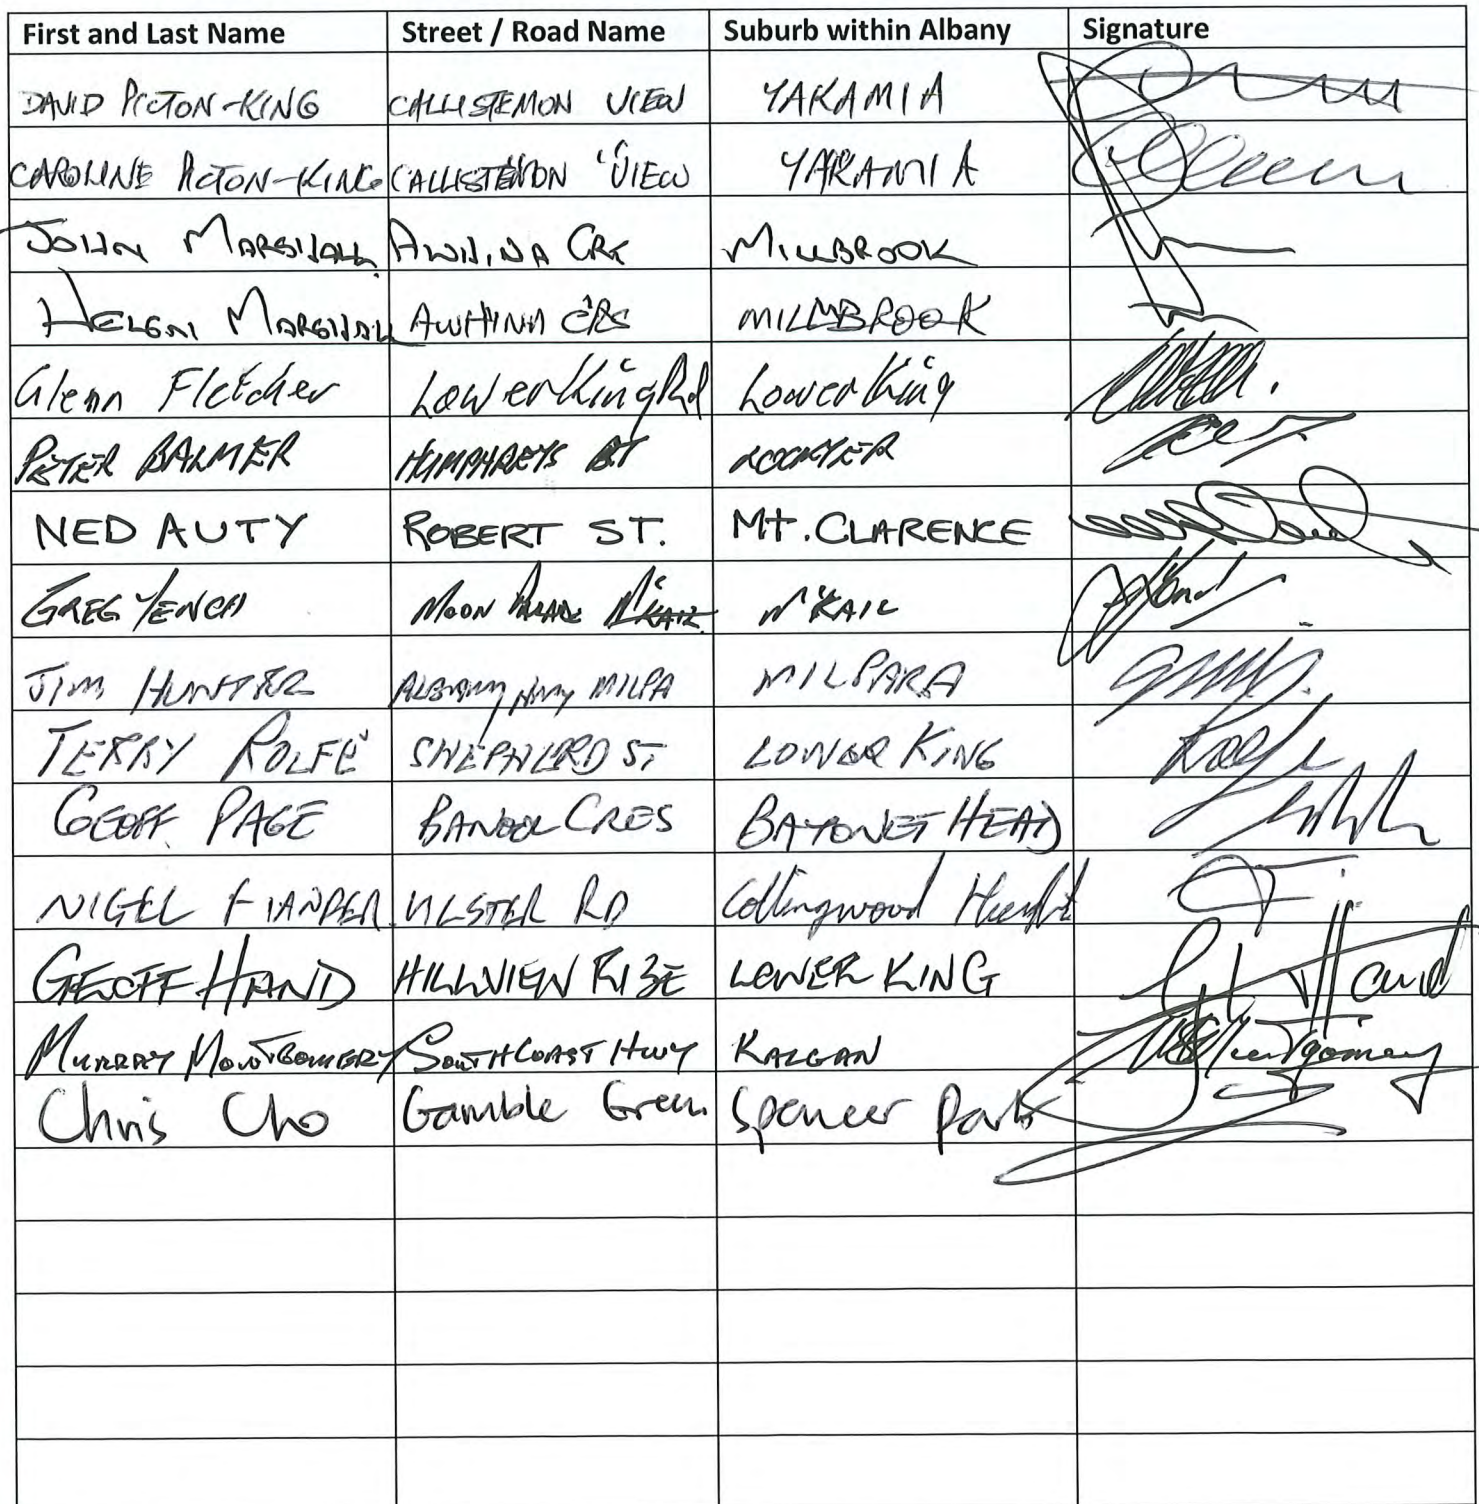 First and Last Name Street / Road Name Suburb within Albany Signature
DAVID PICTON-KING CALLISTEMON VIEW YAKAMIA
CAROLINE PICTON-KING CALLISTEMON VIEW YAKAMIA
JOHN MARSHALL AWHINA CRE MILLBROOK
HELEN MARSHALL AWHINA CRS MILLBROOK
Glenn Fletcher Lower King Rd Lower King
PETER BALMER HUMPHREYS ST LOCKYER
NED AUTY ROBERT ST. MT. CLARENCE
GREG MOON M'KAIL
JIM HUNTER ALBANY HWY MILPA MILPARA
TERRY ROLFE SHEPHERD ST LOWER KING
GEOFF PAGE CRES BAYONET HEAD
NIGEL FIANDER ULSTER RD Collingwood
GEOFF HAND HILLVIEW RISE LOWER KING Hand
MURRAY MONTGOMERY SOUTH COAST HWY KALGAN Montgomery
Chris Cho Gamble Green Spencer Park